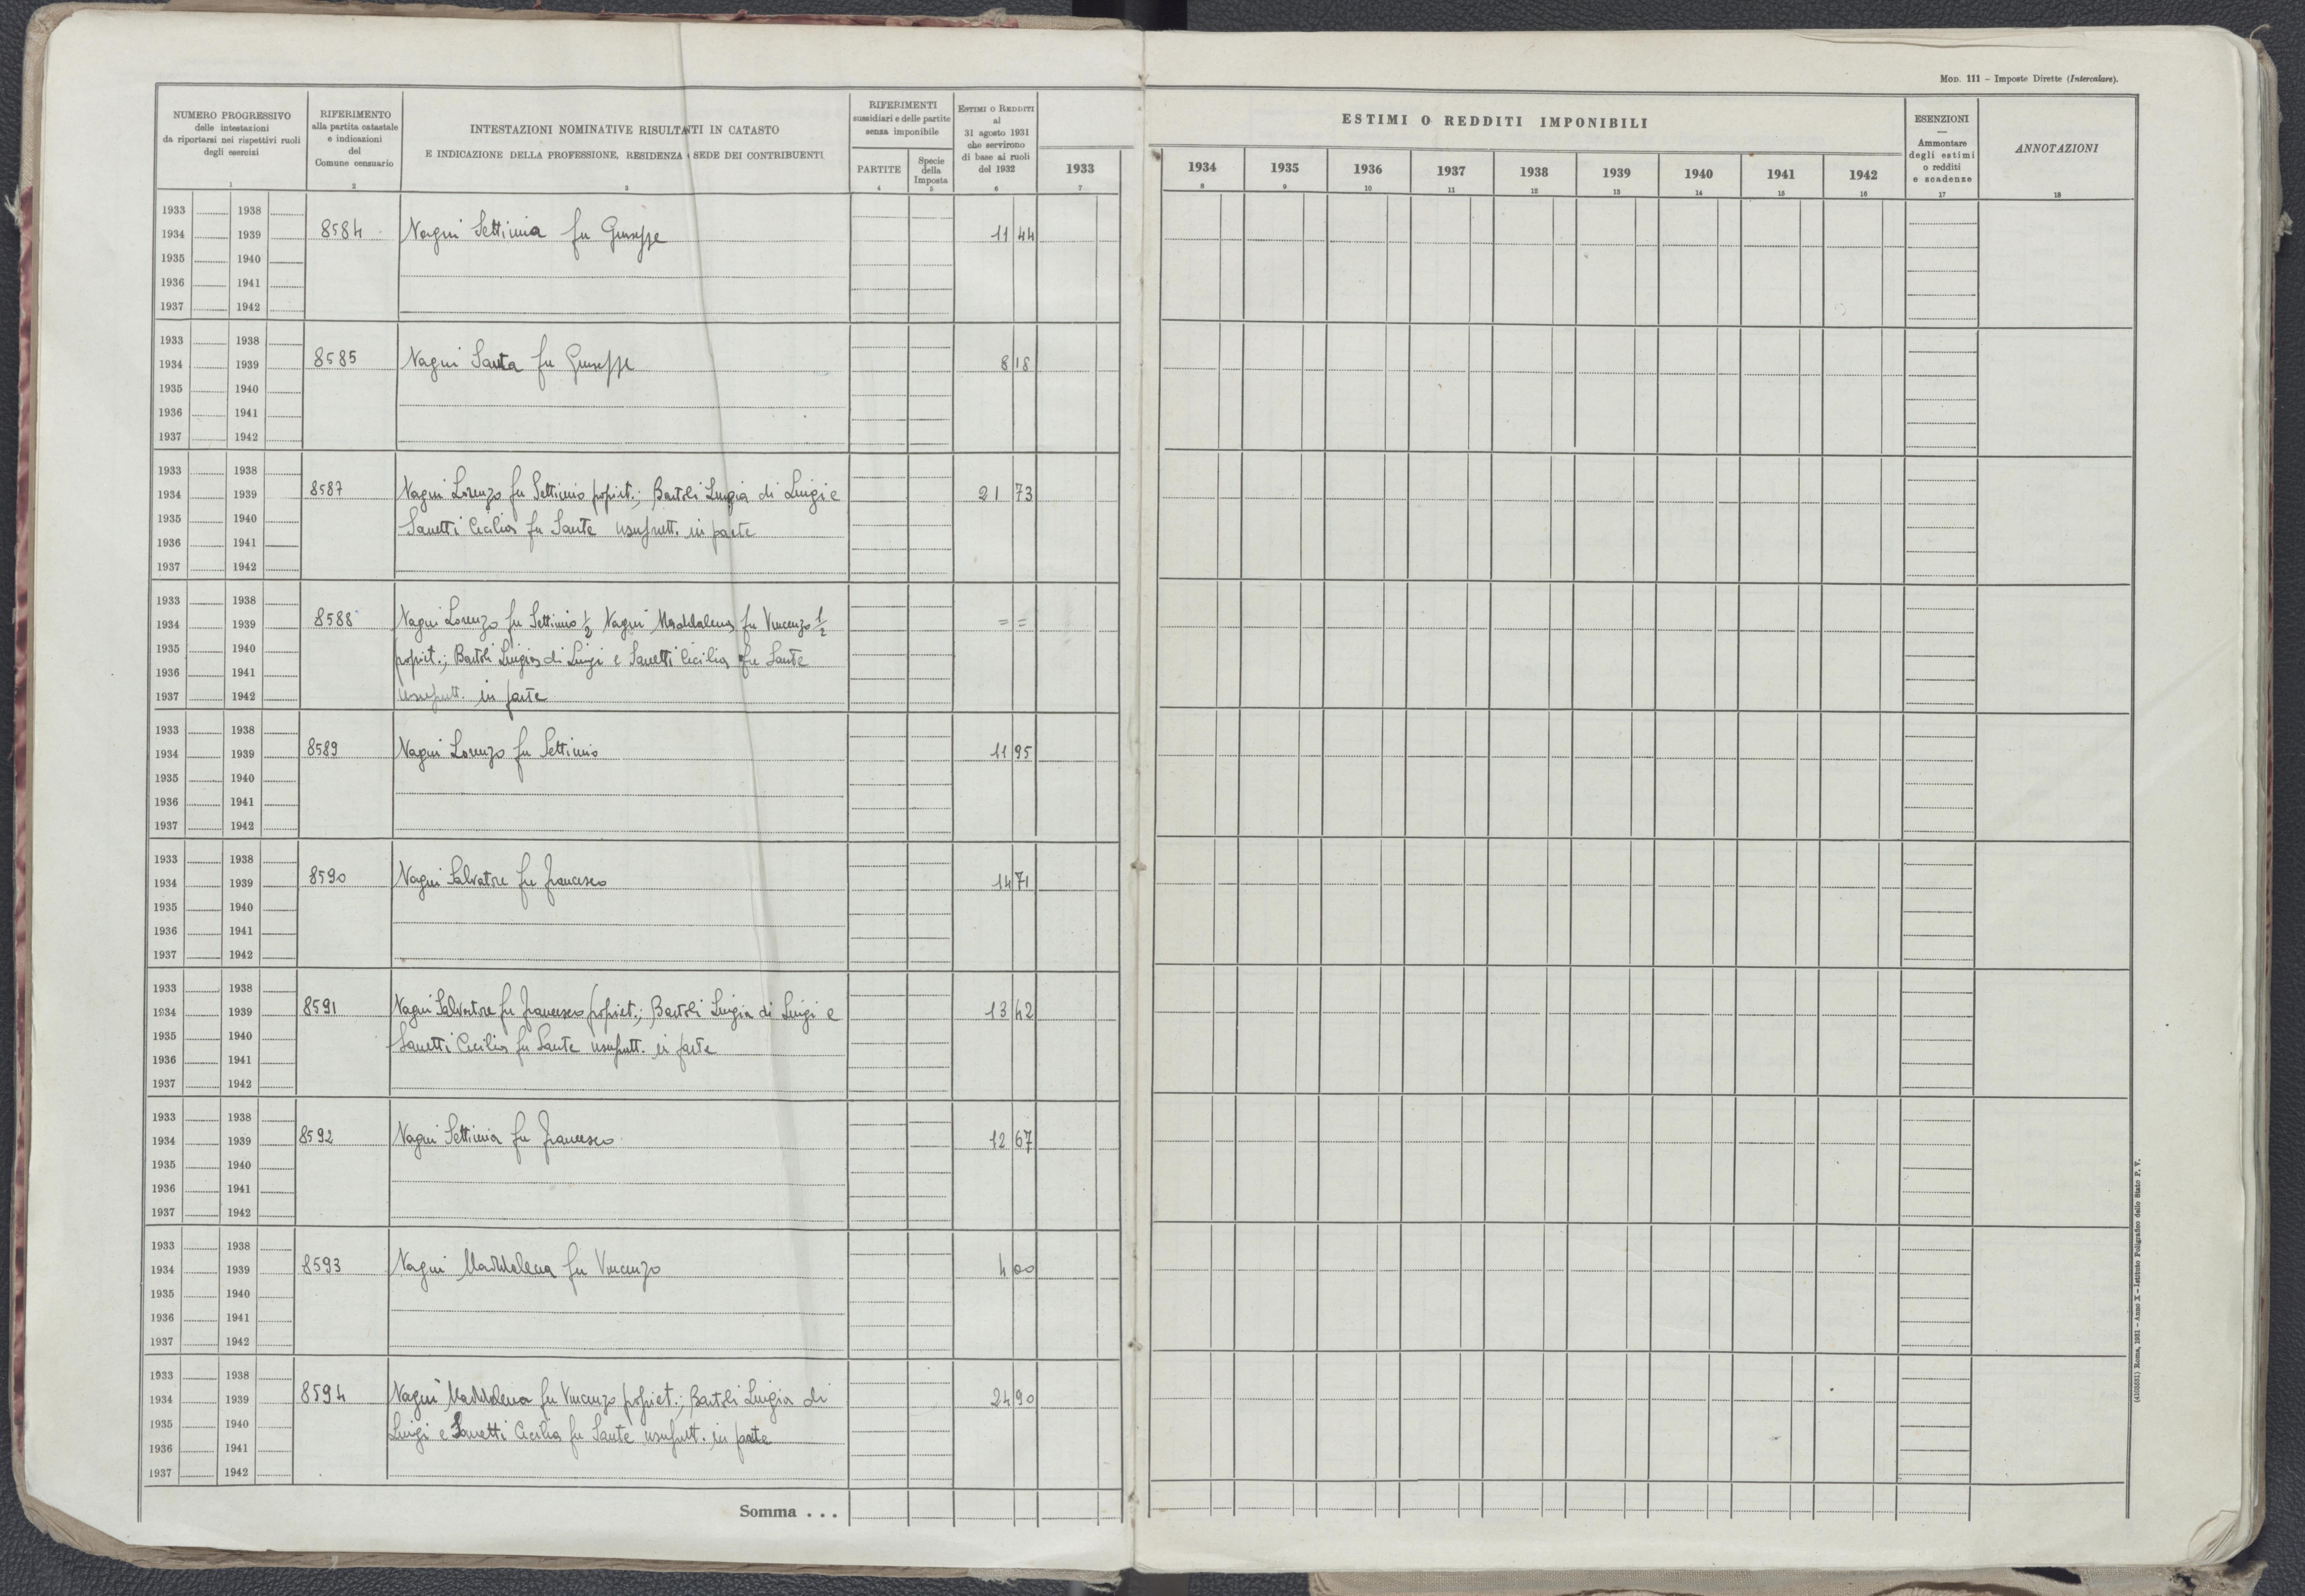 Mod. 111 – Imposte Dirette (Intercalare).
NUMERO PROGRESSIVO
delle intestazioni
da riportarsi nei rispettivi ruoli
degli esercizi
1
RIFERIMENTO
alla partita catastale
e indicazioni
del
Comune censuario
2
INTESTAZIONI NOMINATIVE RISULTANTI IN CATASTO
E INDICAZIONE DELLA PROFESSIONE, RESIDENZA SEDE DEI CONTRIBUENTI
3
RIFERIMENTI
sussidiari e delle partite
senza imponibile
PARTITE
4
Specie
della
Imposta
5
Estimi o Redditi
al
31 agosto 1931
che servirono
di base ai ruoli
del 1932
6
1933
7
ESTIMI O REDDITI IMPONIBILI
1934 1935 1936 1937 1938 1939 1940 1941 1942
8 9 10 11 12 13 14 15 16
ESENZIONI
—
Ammontare
degli estimi
o redditi
e scadenze
17
ANNOTAZIONI
18
1933 1938
1934 1939 8584 Nagni Settimia fu Giuseppe 11 44
1935 1940
1936 1941
1937 1942
1933 1938
1934 1939 8585 Nagni Santa fu Giuseppe 8 18
1935 1940
1936 1941
1937 1942
1933 1938
1934 1939 8587 Nagni Lorenzo fu Settimio propriet.; Bartoli Luigia di Luigi e 21 73
1935 1940 Sanetti Cecilia fu Sante usufrutt. in parte
1936 1941
1937 1942
1933 1938
1934 1939 8588 Nagni Lorenzo fu Settimio ½ Nagni Maddalena fu Vincenzo ½ = =
1935 1940 propriet.; Bartoli Luigia di Luigi e Sanetti Cecilia fu Sante
1936 1941
1937 1942 usufrutt. in parte
1933 1938
1934 1939 8589 Nagni Lorenzo fu Settimio 11 95
1935 1940
1936 1941
1937 1942
1933 1938
1934 1939 8590 Nagni Salvatore fu Francesco 14 71
1935 1940
1936 1941
1937 1942
1933 1938
1934 1939 8591 Nagni Salvatore fu Francesco propriet.; Bartoli Luigia di Luigi e 13 42
1935 1940 Sanetti Cecilia fu Sante usufrutt. in parte
1936 1941
1937 1942
1933 1938
1934 1939 8592 Nagni Settimia fu Francesco 12 67
1935 1940
1936 1941
1937 1942
1933 1938
1934 1939 8593 Nagni Maddalena fu Vincenzo 4 00
1935 1940
1936 1941
1937 1942
1933 1938
1934 1939 8594 Nagni Maddalena fu Vincenzo propriet.; Bartoli Luigia di 24 90
1935 1940 Luigi e Sanetti Cecilia fu Sante usufrutt. in parte
1936 1941
1937 1942
Somma . . .
(4103531) Roma, 1931 – Anno X – Istituto Poligrafico dello Stato P. V.